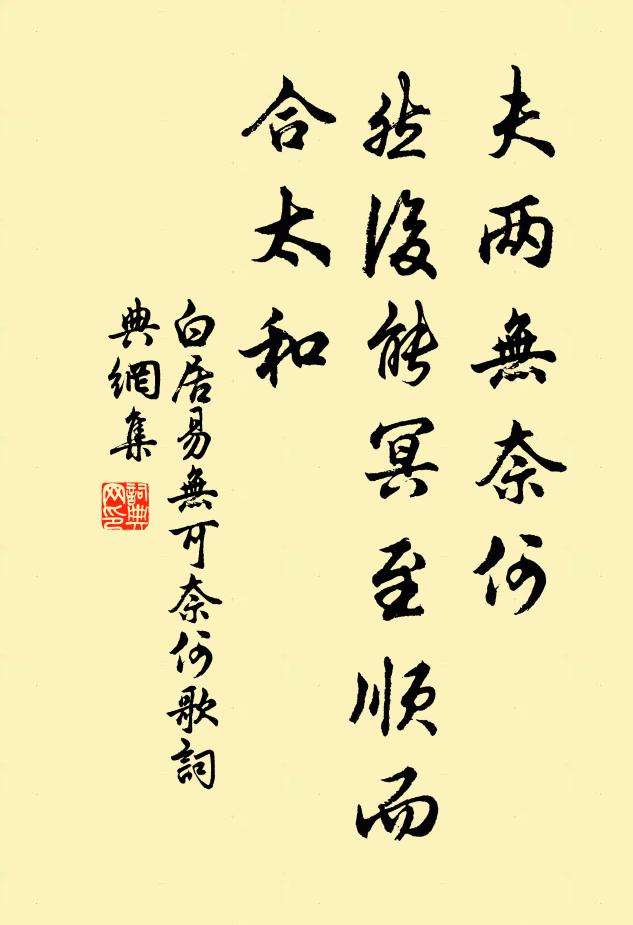 夫兩無奈何
然後能冥至順而
合太和
白居易無可奈何歌詞
典網集
詞典网印